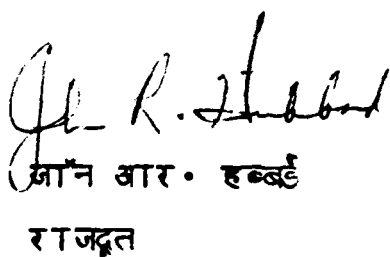 John R. Hubbard
जॉन आर. हब्बर्ड
राजदूत